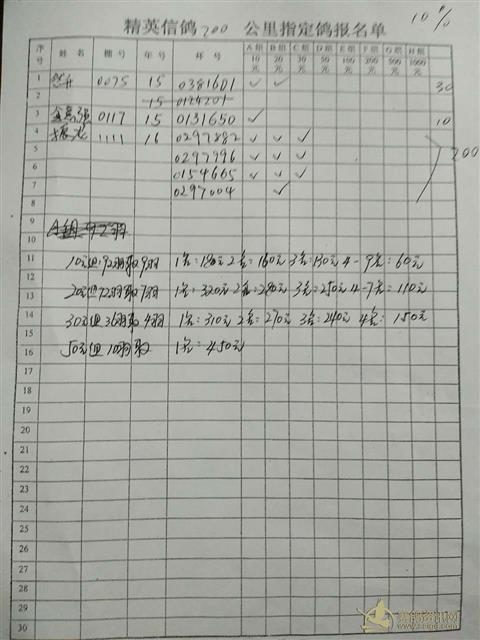 10%
精英信鸽 700 公里指定鸽报名单
序号 姓名 棚号 年号 环号 A组10元 B组20元 C组30元 D组50元 E组100元 F组200元 G组500元 H组1000元
1 0075 15 0381601 ✓ ✓ 30
2 15 0124201
3 0117 15 0131650 ✓ 10
4 1111 16 0297882 ✓ ✓ ✓
5 0297996 ✓ ✓ ✓ 200
6 0154665 ✓ ✓ ✓
7 0297004 ✓
8
9 A组 92羽
10
11 10元组:92羽取9羽 1名:180元 2名:160元 3名:130元 4-9名:60元
12
13 20元组72羽取7羽 1名:320元 2名:280元 3名:250元 4-7名:110元
14 30元组36羽取4羽 1名:310元 2名:270元 3名:240元 4名:150元
15
16 50元组10羽取 1名:450元
17
18
19
20
21
22
23
24
25
26
27
28
29
30